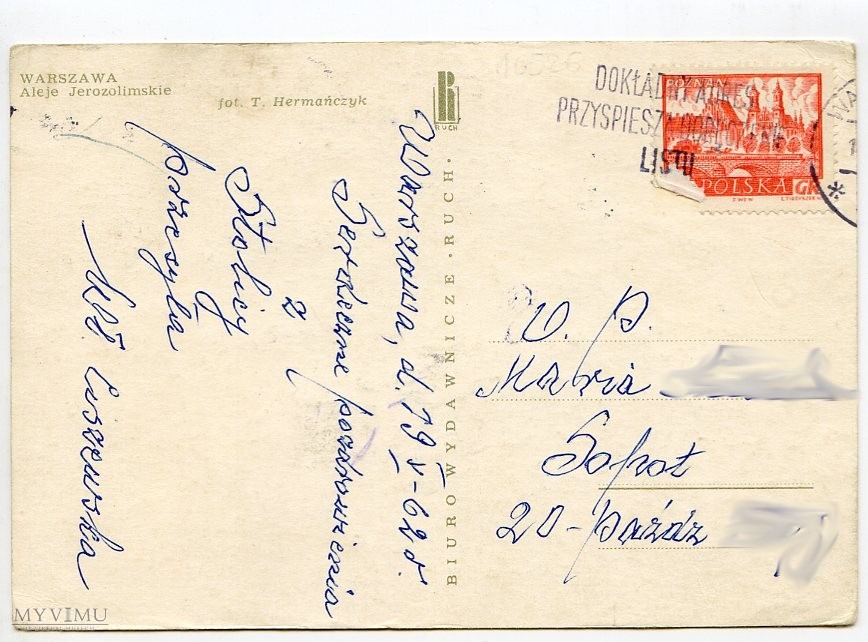 WARSZAWA
Aleje Jerozolimskie
fot. T. Hermańczyk
R
RUCH
DOKŁADNY ADRES
PRZYSPIESZA
LISTU
POZNAŃ
POLSKA GR
BIURO WYDAWNICZE · RUCH ·
Warszawa, d. 19 V-62 r.
Serdeczne pozdrowienia
z
Stolicy
przesyła
W. P.
Maria
Sopot
20-Paźdz
MYVIMU